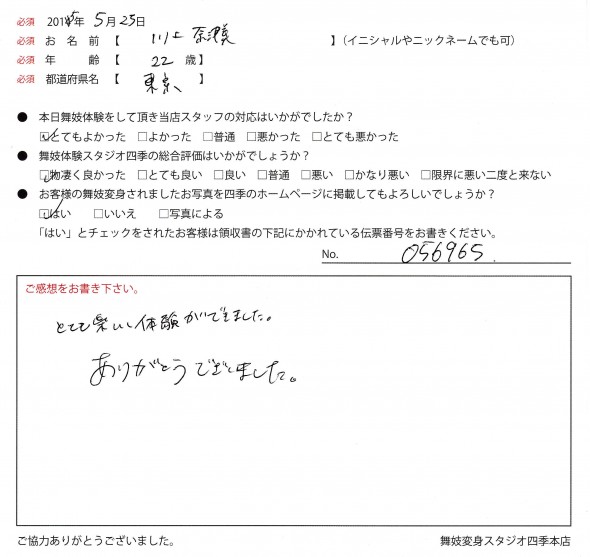 必須 2015年 5月25日
必須 お名前【 川上 奈津美 】(イニシャルやニックネームでも可)
必須 年齢【 22 歳】
必須 都道府県名【 東京 】
● 本日舞妓体験をして頂き当店スタッフの対応はいかがでしたか?
☑とてもよかった □よかった □普通 □悪かった □とても悪かった
● 舞妓体験スタジオ四季の総合評価はいかがでしょうか?
☑物凄く良かった □とても良い □良い □普通 □悪い □かなり悪い □限界に悪い二度と来ない
● お客様の舞妓変身されましたお写真を四季のホームページに掲載してもよろしいでしょうか?
☑はい □いいえ □写真による
「はい」とチェックをされたお客様は領収書の下記にかかれている伝票番号をお書きください。
No. 056965.
ご感想をお書き下さい。
とても楽しい体験ができました。
ありがとうございました。
ご協力ありがとうございました。 舞妓変身スタジオ四季本店